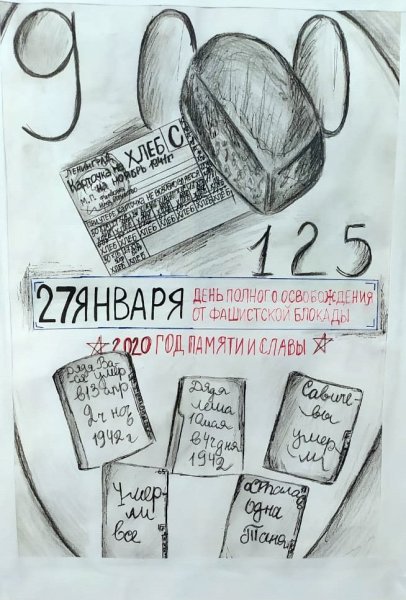 900
ЛЕНИНГРАД
Карточка на ХЛЕБ С
на ноябрь 1941г.
М.П.
ПРИ УТЕРЕ КАРТОЧКА НЕ ВОЗОБНОВЛЯЕТСЯ
ХЛЕБ ХЛЕБ ХЛЕБ ХЛЕБ ХЛЕБ
ХЛЕБ ХЛЕБ
ХЛЕБ
125
27 ЯНВАРЯ
ДЕНЬ ПОЛНОГО ОСВОБОЖДЕНИЯ
ОТ ФАШИСТСКОЙ БЛОКАДЫ
2020 ГОД ПАМЯТИ И СЛАВЫ
Дядя Ва-
ся умер
в 13 апр
2 ч ноч
1942 г
Дядя
Леша
10 мая
в 4 ч дня
1942
Савиче-
вы
умер
ли
Умер-
ли
все
Осталась
одна
Таня